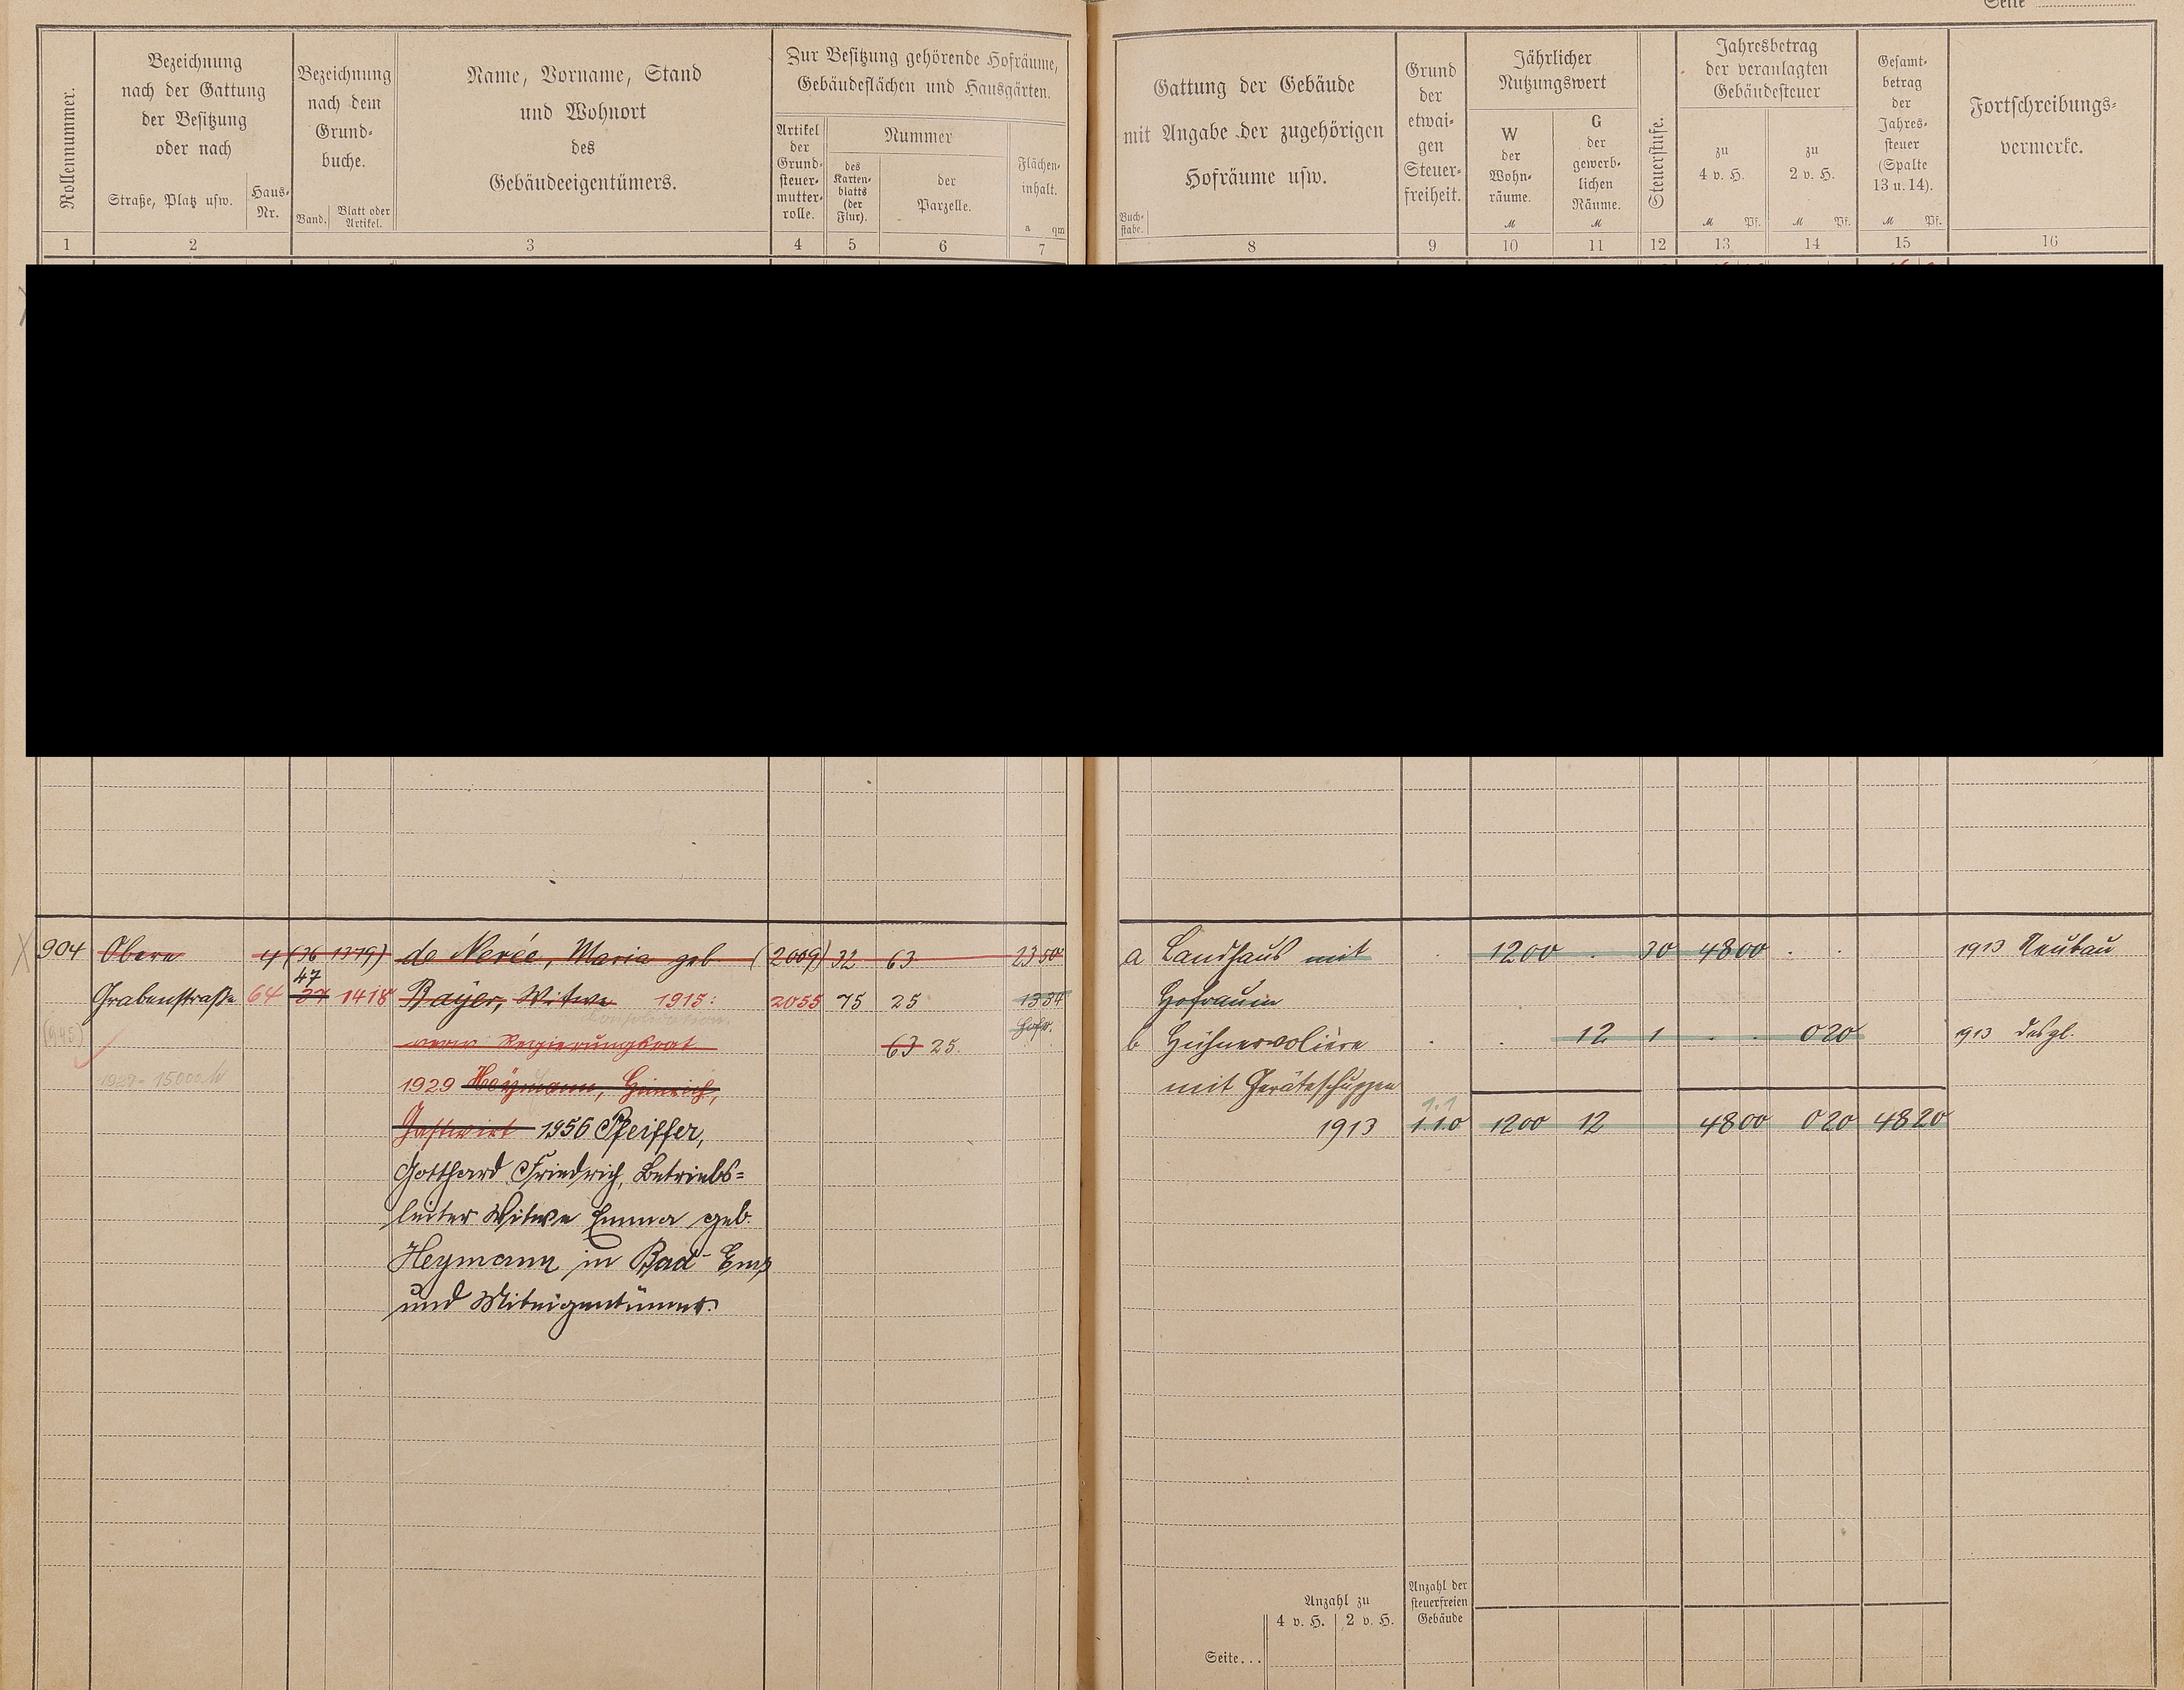 Seite
Rollennummer.
Bezeichnung
nach der Gattung
der Besitzung
oder nach
Straße, Platz usw.
Haus-
Nr.
Bezeichnung
nach dem
Grund-
buche.
Band.
Blatt oder
Artikel.
Name, Vorname, Stand
und Wohnort
des
Gebäudeeigentümers.
Zur Besitzung gehörende Hofräume,
Gebäudeflächen und Hausgärten.
Artikel
der
Grund-
steuer-
mutter-
rolle.
Nummer
des
Karten-
blatts
(der
Flur).
der
Parzelle.
Flächen-
inhalt.
a qm
1 2 3 4 5 6 7
Gattung der Gebäude
mit Angabe der zugehörigen
Hofräume usw.
Buch-
stabe.
Grund
der
etwai-
gen
Steuer-
freiheit.
Jährlicher
Nutzungswert
W
der
Wohn-
räume.
M
G
der
gewerb-
lichen
Räume.
M
Steuerstufe.
Jahresbetrag
der veranlagten
Gebäudesteuer
zu
4 v. H.
M Pf.
zu
2 v. H.
M Pf.
Gesamt-
betrag
der
Jahres-
steuer
(Spalte
13 u. 14).
M Pf.
Fortschreibungs-
vermerke.
8 9 10 11 12 13 14 15 16
904 Obere 4 (36 1379) de Nerée, Maria geb (2009) 32 63 23 50
47
Grabenstraße 64 37 1418 Bayer, Witwe 1915: 2055 75 25 13 34
Konsolidation.
Hofr.
(945)
verw Regierungsrat 63 25.
1929 - 15000 M
1929 Heymann, Heinrich,
Gastwirt 1956 Pfeiffer,
Gotthard Friedrich, Betriebs=
leiter Witwe Emma geb.
Heymann in Bad-Ems
und Miteigentümer.
a Landhaus mit . 1200 . 30 48 00 . . 1913 Neubau
Hofraum
b Hühnervolière . . 12 1 . . 0 20 1913 desgl.
mit Geräteschuppen
1.1
1913 1.1.0 1200 12 48 00 0 20 48 20
Anzahl zu
4 v. H. 2 v. H.
Anzahl der
steuerfreien
Gebäude
Seite...